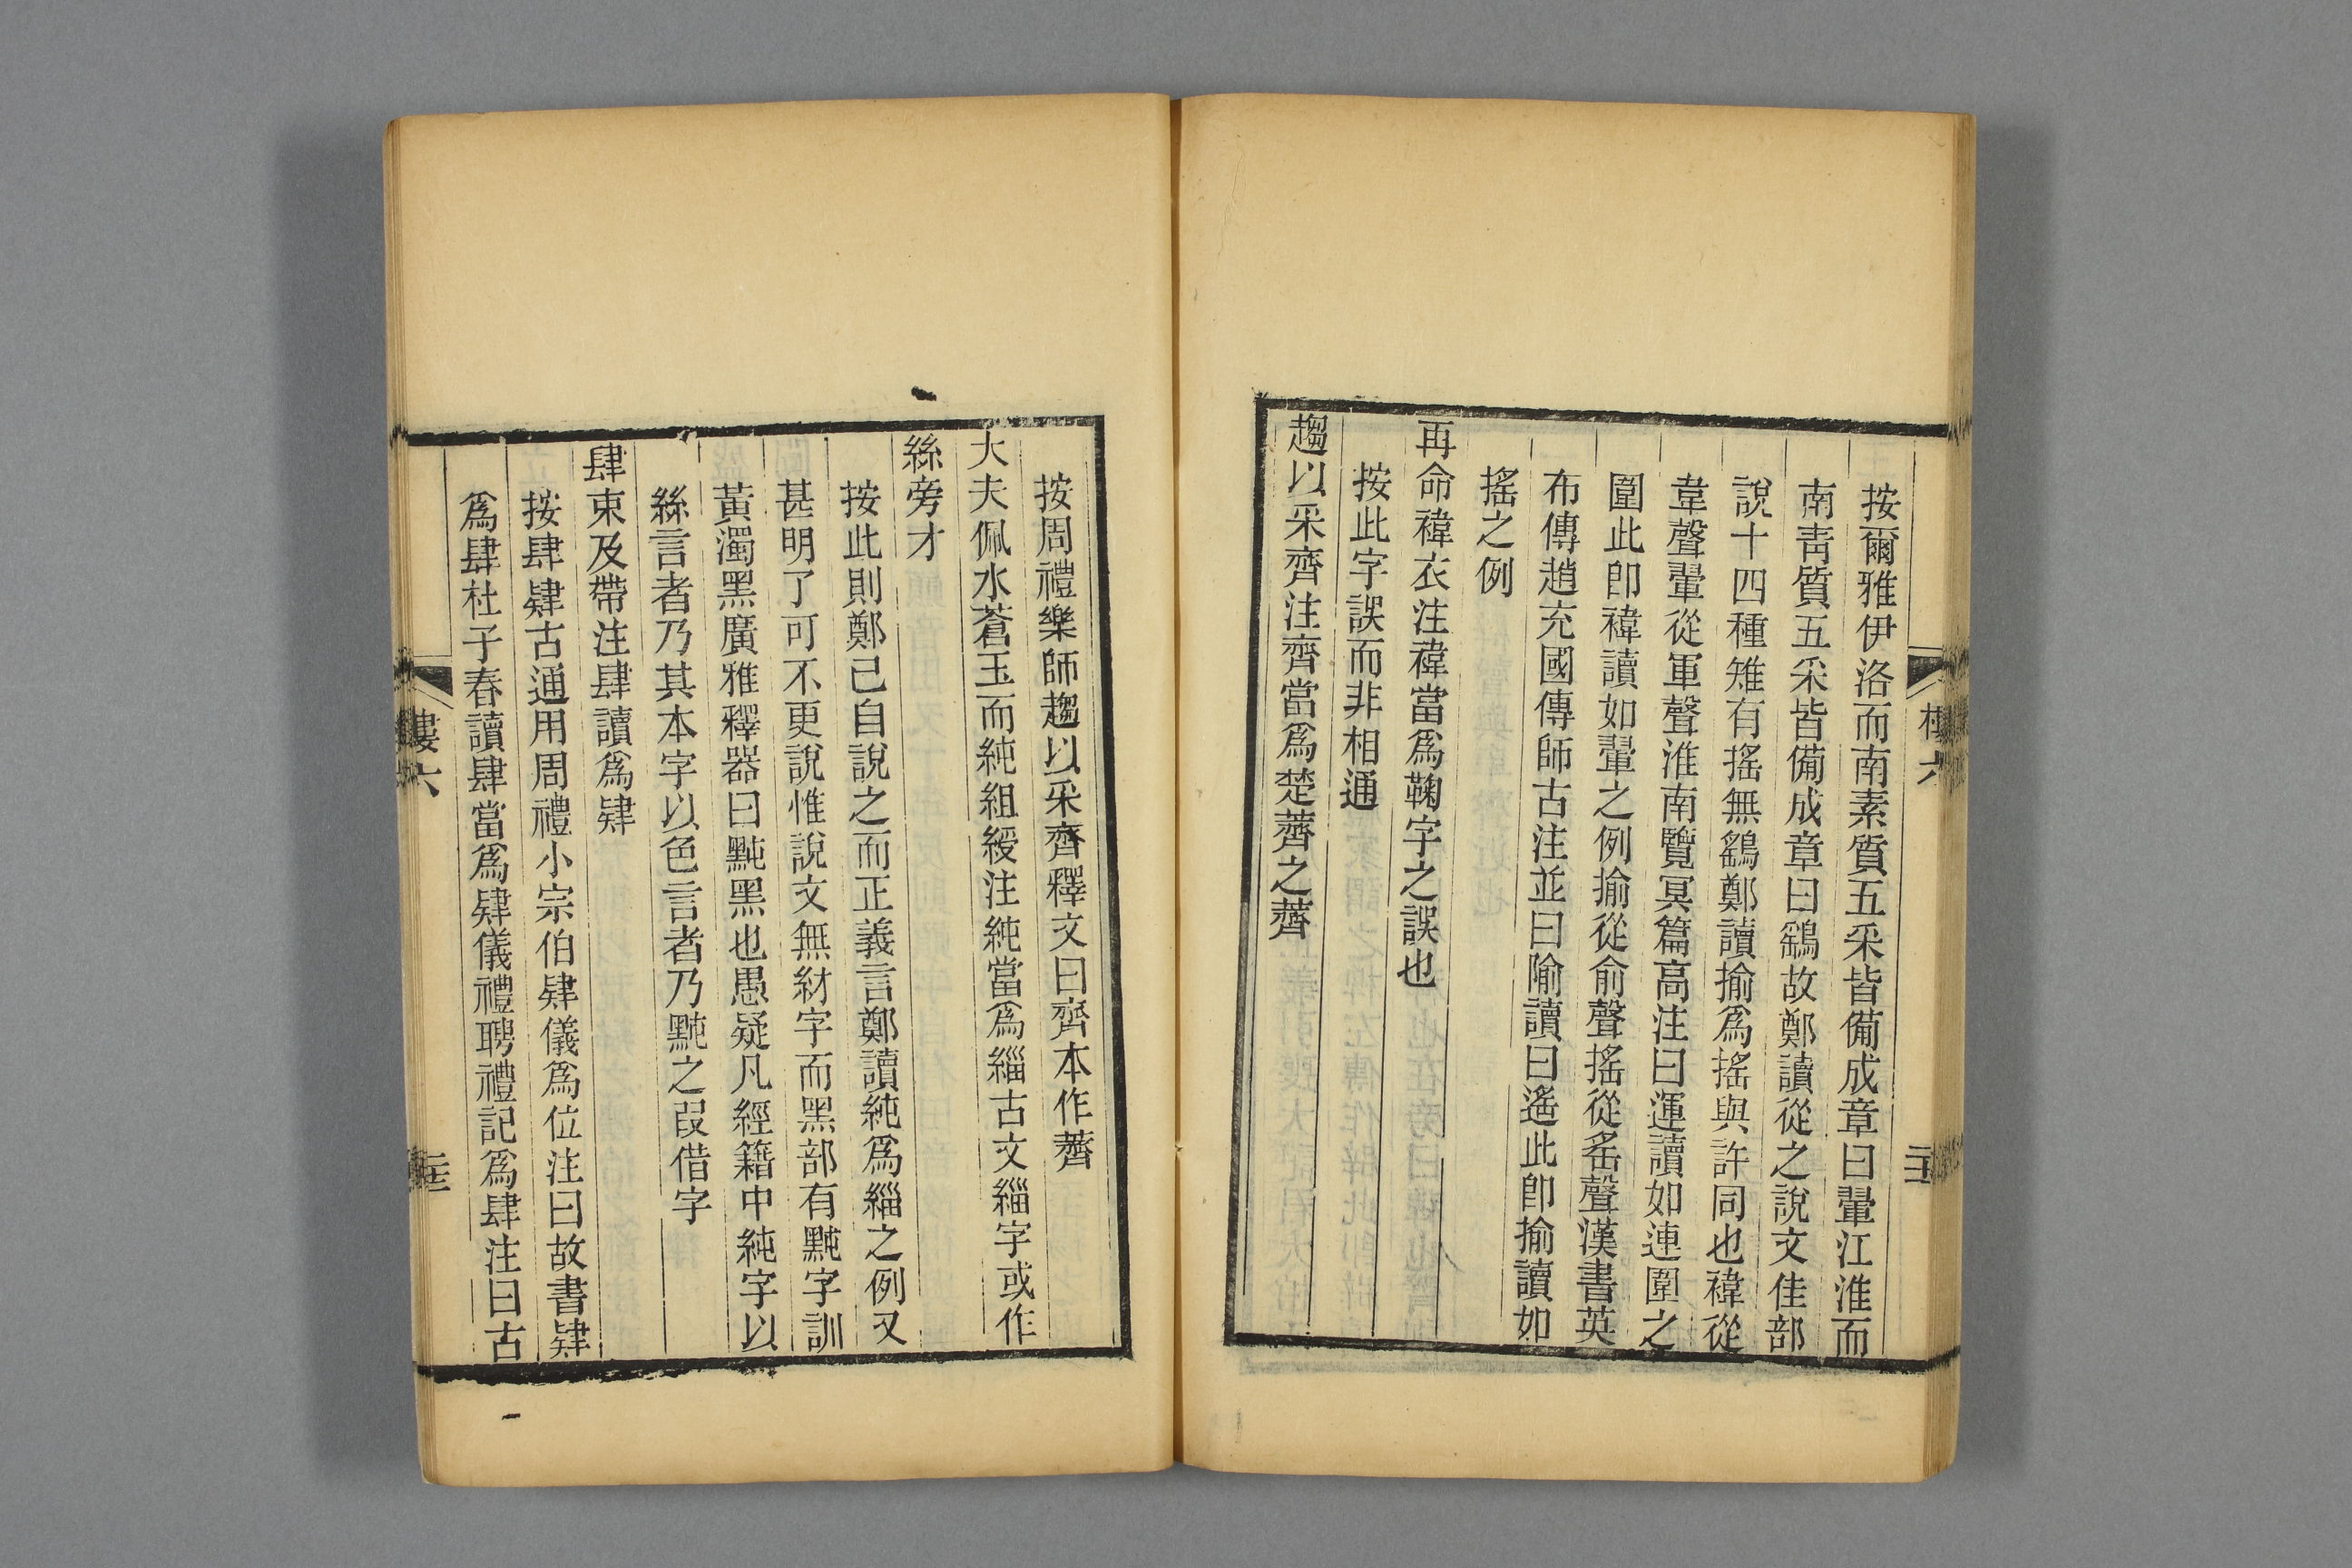 按爾雅伊洛而南素質五采皆備成章曰翬江淮而
南靑質五采皆備成章曰鷂故鄭讀從之說文隹部
說十四種雉有搖無鷂鄭讀揄爲搖與許同也褘從
韋聲翬從軍聲淮南覽冥篇高注曰運讀如連圍之
圍此卽褘讀如翬之例揄從俞聲搖從䍃聲漢書英
布傳趙充國傳師古注並曰隃讀曰遙此卽揄讀如
搖之例
再命褘衣注褘當爲鞠字之誤也
按此字誤而非相通
趨以采齊注齊當爲楚薺之薺
按周禮樂師趨以采齊釋文曰齊本作薺
大夫佩水蒼玉而純組綬注純當爲緇古文緇字或作
絲旁才
按此則鄭已自說之而正義言鄭讀純爲緇之例又
甚明了可不更說惟說文無紂字而黑部有黗字訓
黃濁黑廣雅釋器曰黗黑也愚疑凡經籍中純字以
絲言者乃其本字以色言者乃黗之叚借字
肆束及帶注肆讀爲肄
按肆肄古通用周禮小宗伯肄儀爲位注曰故書肄
爲肆杜子春讀肆當爲肄儀禮聘禮記爲肆注曰古
樓六